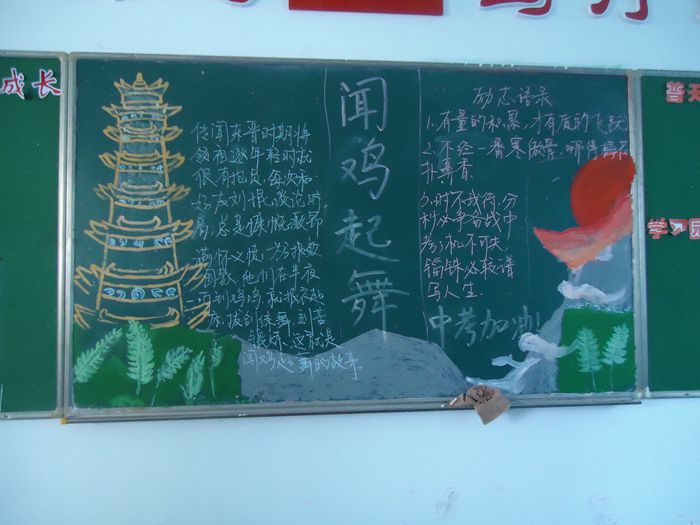 成长
传闻东晋时期将
领祖逖年轻时就
很有抱负，每次和
好友刘琨谈论时
局，总是慷慨激昂
满怀义愤，为了报效
国家，他们在半夜
一听到鸡鸣，就披衣起
床，拔剑练舞，刻苦
锻炼，这就是
闻鸡起舞的故事。
闻鸡起舞
励志语录
1.有量的积累，才有质的飞跃
2.不经一番寒彻骨，哪得梅花
扑鼻香
3.时不我待，分
秒必争备战中
考；机不可失，
锱铢必较谱
写人生.
中考加油!
普天
学习园